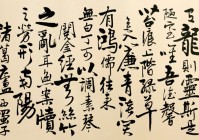 龍則靈斯是
陋室唯吾德馨
苔痕上階綠草
色入簾青談笑
有鴻儒往來
無白丁可以調素琴
閱金經無絲竹
之亂耳無案牘
之勞形南陽
諸葛廬西蜀子